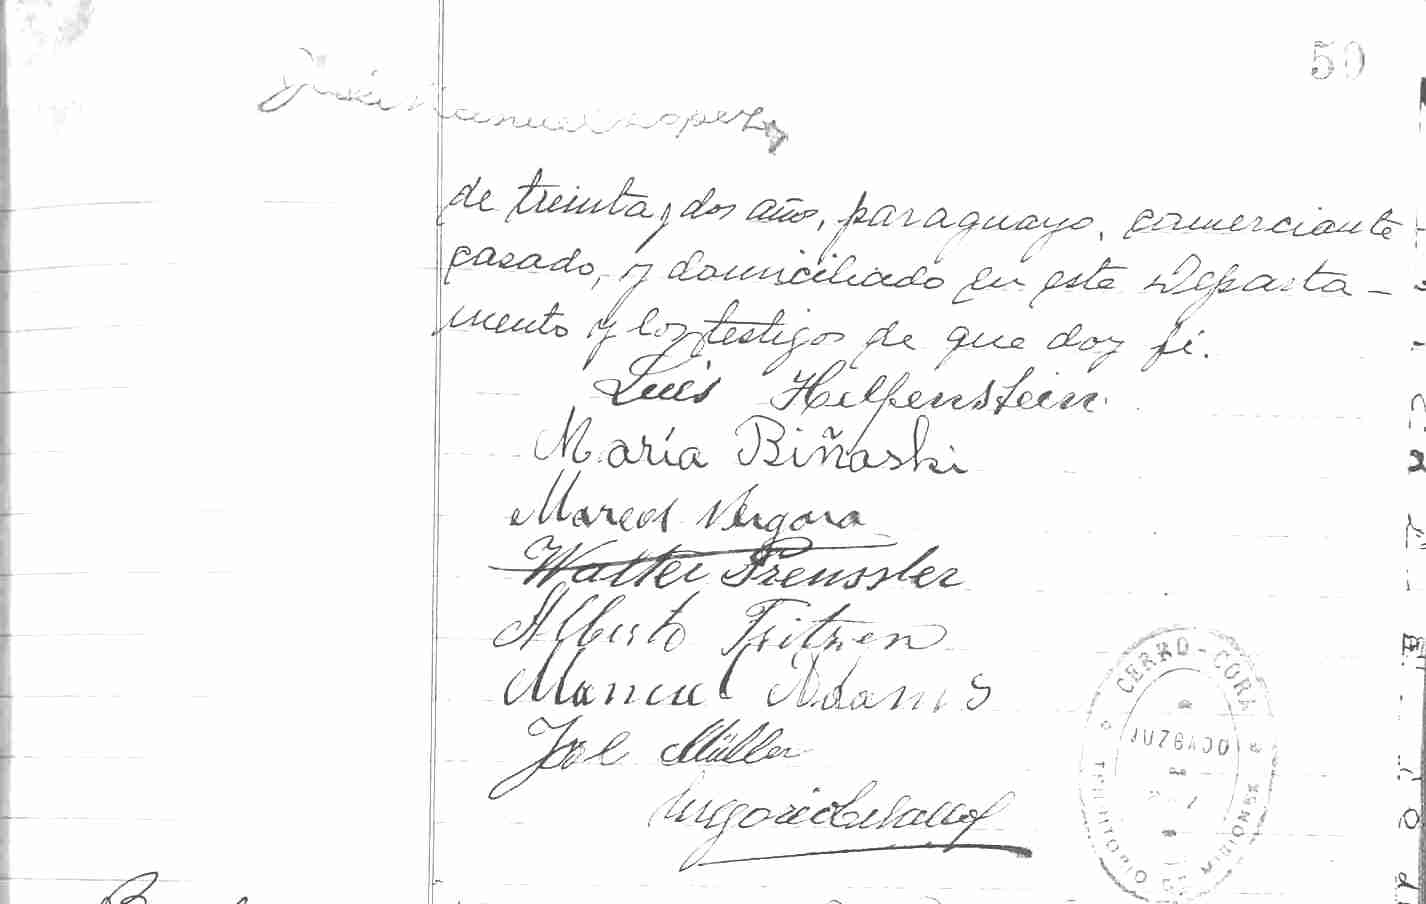 50
José Manuel Lopez
de treinta y dos años, paraguayo, comerciante
casado, y domiciliado en este Departa-
mento y los testigos de que doy fé.
Luis Helfenstein
María Biñaski
Marcos Vergara
Walter Preussler
Alberto Fritzen
Manuel Adams
José Müller
CERRO-CORÁ
JUZGADO
TERRITORIO DE MISIONES